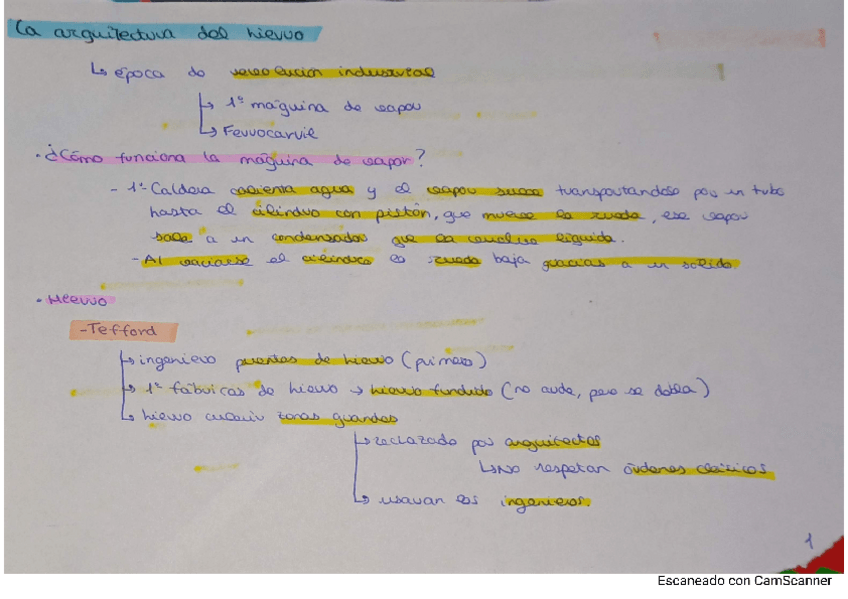 La arquitectura del hierro
↳ época de revolución industrial
↳ 1º máquina de vapor
↳ Ferrocarril
· ¿Cómo funciona la máquina de vapor?
- 1º Caldera calienta agua y el vapor sube transportandose por un tubo
hasta el cilindro con pistón, que mueve la rueda, ese vapor
sale a un condensador que la vuelve líquida.
- Al vaciarse el cilindro la rueda baja gracias a un sólido.
· Hierro
- Tefford
↳ ingeniero puentes de hierro (primero)
↳ 1º fábricas de hierro → hierro fundido (no arde, pero se dobla)
↳ hierro cubrir zonas grandes
↳ rechazado por arquitectos
↳ No respetan órdenes clásicos
↳ usavan los ingenieros.
1
Escaneado con CamScanner